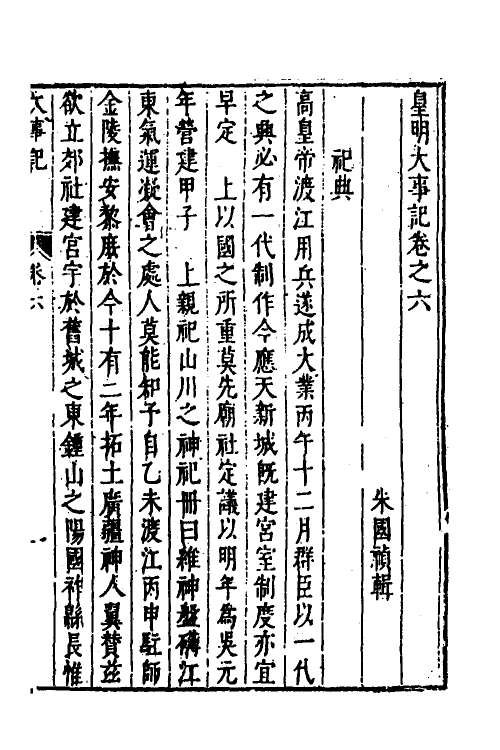 皇明大事記卷之六
朱國禎輯
祀典
高皇帝渡江用兵遂成大業丙午十二月群臣以一代
之典必有一代制作今應天新城既建宮室制度亦宜
早定　上以國之所重莫先廟社定議以明年為吳元
年營建甲子　上親祀山川之神祀冊曰維神盤礴江
東氣運凝會之處人莫能知予自乙未渡江丙申駐師
金陵撫安黎庶於今十有二年拓土廣疆神人翼贊茲
欲立郊社建宮宇於舊城之東鍾山之陽國祚緜長惟
大事記
卷六